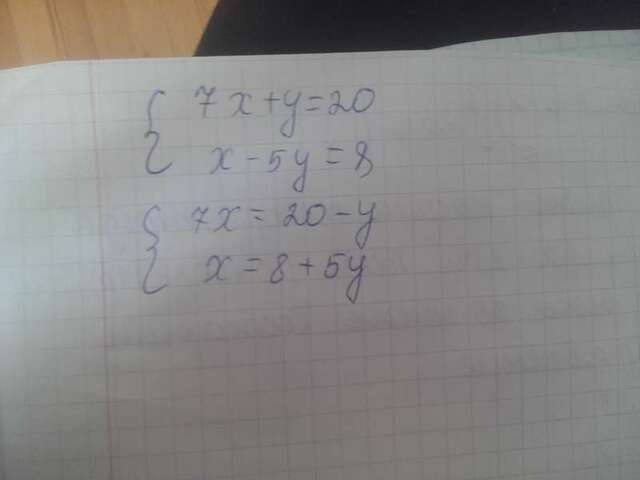 7x+y=20
x-5y=8
7x=20-y
x=8+5y